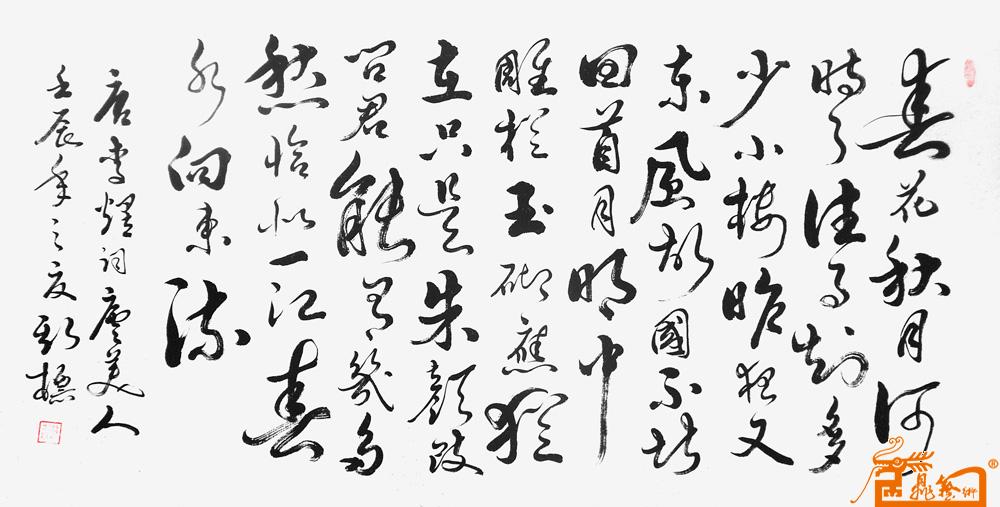 春花秋月何
時了往事知多
少小樓昨夜又
東風故國不堪
回首月明中
雕栏玉砌應猶
在只是朱顏改
問君能有幾多
愁恰似一江春
水向東流
唐李煜詞虞美人
壬辰年之夏